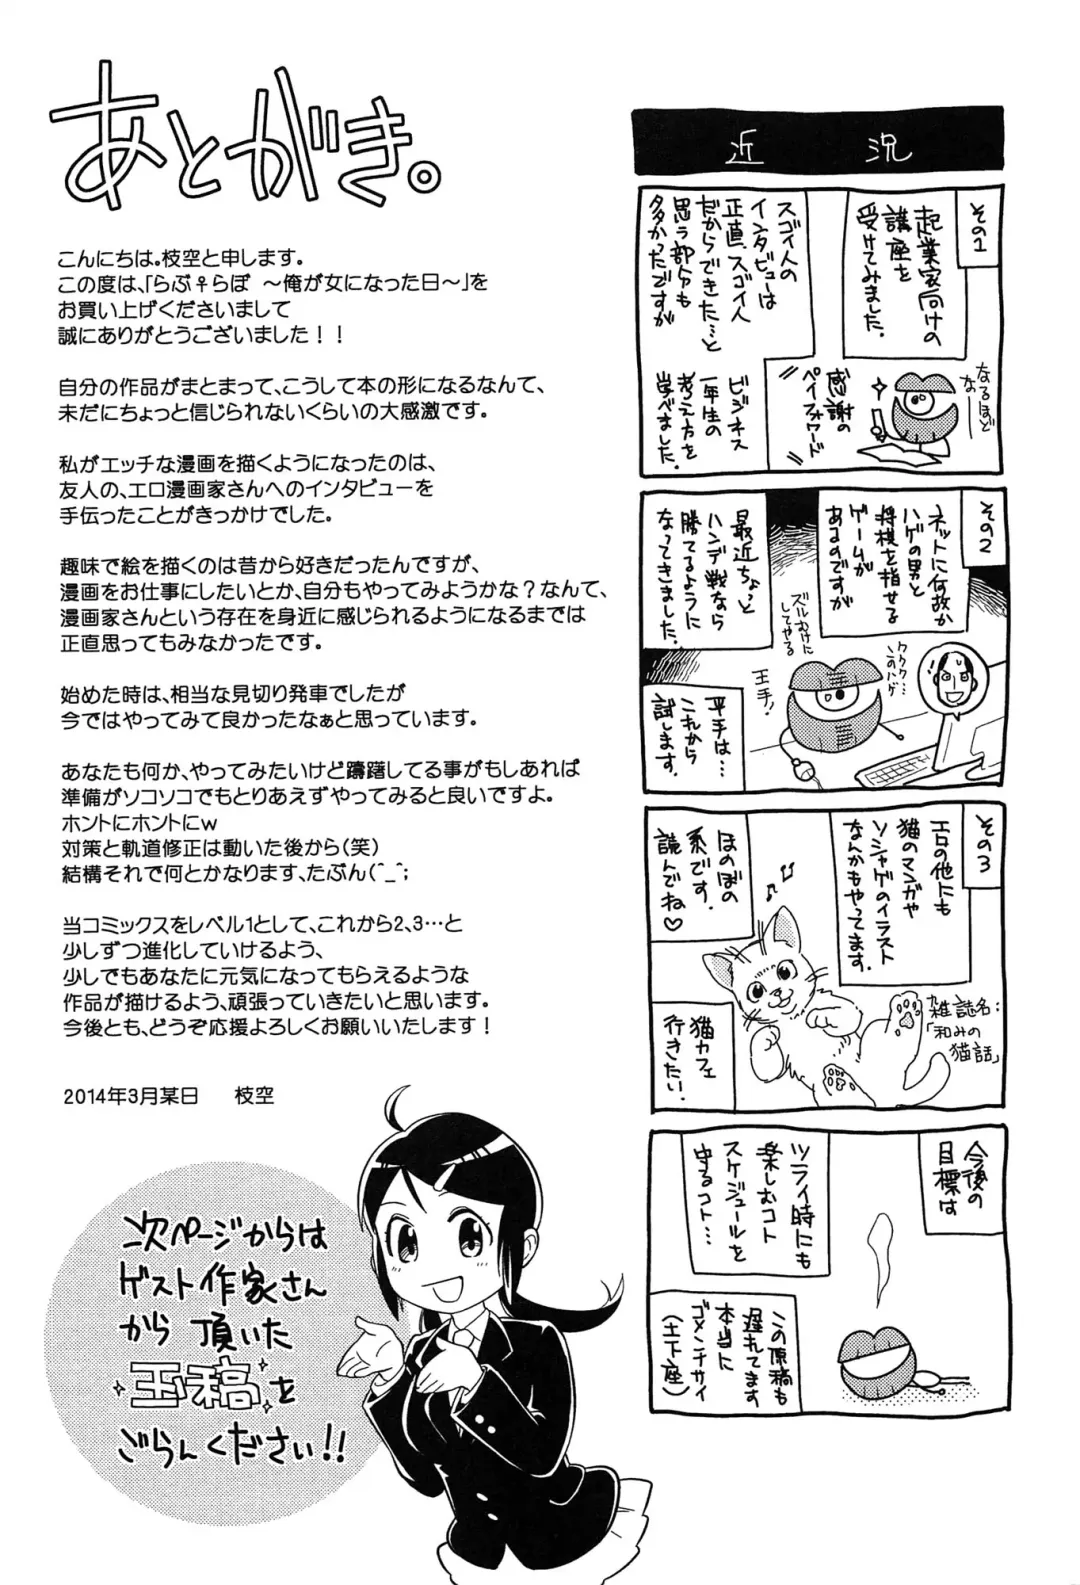 あとがき。
こんにちは。枝空と申します。
この度は、「らぶ♀らぼ ～俺が女になった日～」を
お買い上げくださいまして
誠にありがとうございました！！
自分の作品がまとまって、こうして本の形になるなんて、
未だにちょっと信じられないくらいの大感激です。
私がエッチな漫画を描くようになったのは、
友人の、エロ漫画家さんへのインタビューを
手伝ったことがきっかけでした。
趣味で絵を描くのは昔から好きだったんですが、
漫画をお仕事にしたいとか、自分もやってみようかな？なんて、
漫画家さんという存在を身近に感じられるようになるまでは
正直思ってもみなかったです。
始めた時は、相当な見切り発車でしたが
今ではやってみて良かったなぁと思っています。
あなたも何か、やってみたいけど躊躇してる事がもしあれば
準備がソコソコでもとりあえずやってみると良いですよ。
ホントにホントにw
対策と軌道修正は動いた後から（笑）
結構それで何とかなります、たぶん(^_^;
当コミックスをレベル1として、これから2、3…と
少しずつ進化していけるよう、
少しでもあなたに元気になってもらえるような
作品が描けるよう、頑張っていきたいと思います。
今後とも、どうぞ応援よろしくお願いいたします！
2014年3月某日 枝空
次ページからは
ゲスト作家さん
から頂いた
玉稿を
ごらんください!!
近況
その1
起業家向けの
講座を
受けてみました。
スゴイ人の
インタビューは
正直、スゴイ人
だからできた…と
思う部分も
多かったですが
ビジネス
一年生の
考え方を
学べました。
感謝の
ペイフォワード
なるほど
なー
その2
ネットに何故か
ハゲの男と
将棋を指せる
ゲームが
あるのですが
最近ちょっと
ハンデ戦なら
勝てるように
なってきました。
ズルむけに
してやる
ククク…
このハゲ
王手!
平手は…
これから
試します。
その3
エロの他にも
猫のマンガや
ソシャゲのイラスト
なんかもやってます。
ほのぼの
系です。
読んでね♡
♪♫
雑誌名:
「和みの
猫話」
猫カフェ
行きたい!
今後の
目標は
ツライ時にも
楽しむコト
スケジュールを
守るコト…
この原稿も
遅れてます
本当に
ゴメンナサイ
(土下座)